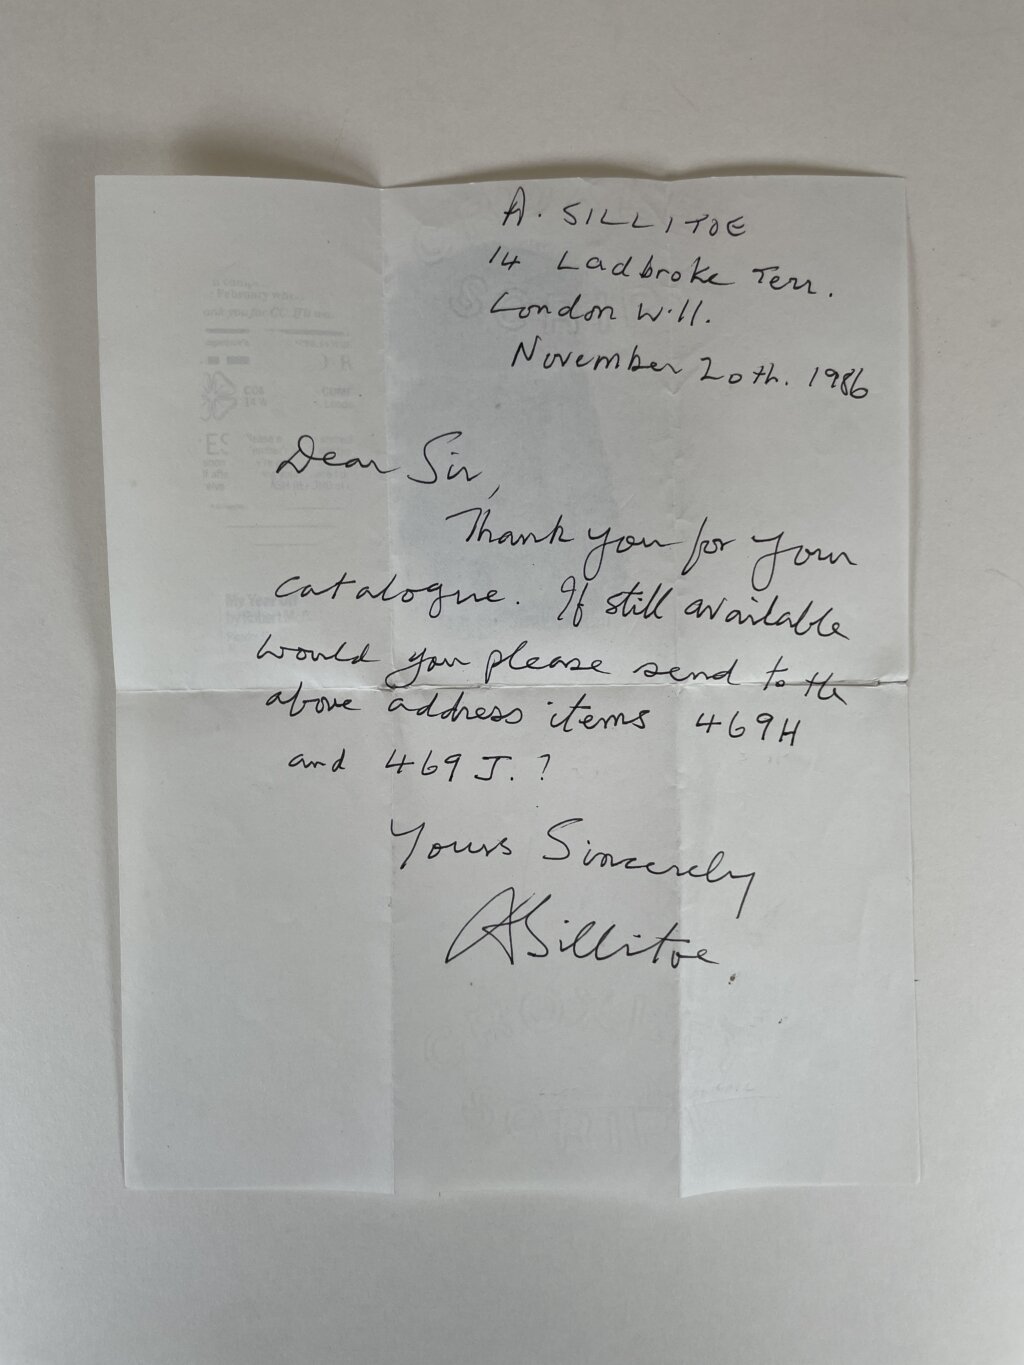 A. SILLITOE
14 Ladbroke Terr.
London W.11.
November 20th. 1986
Dear Sir,
Thank you for your
catalogue. If still available
would you please send to the
above address items 469H
and 469J.?
Yours Sincerely
ASillitoe